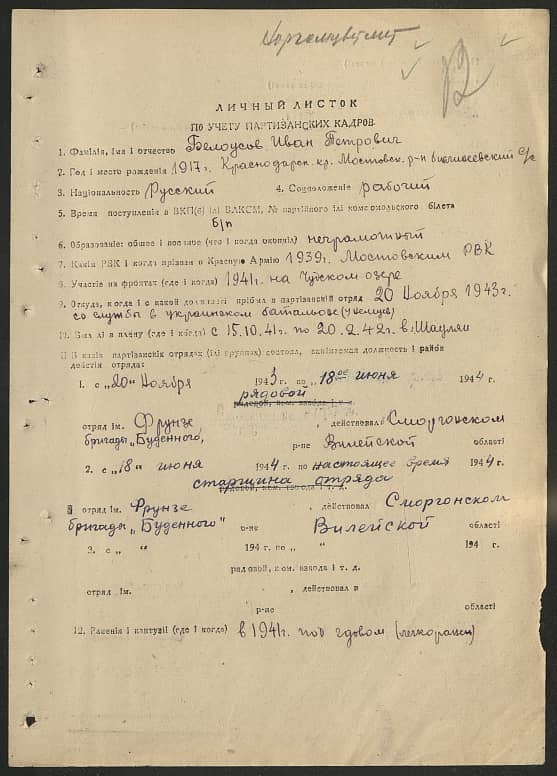 12
ЛИЧНЫЙ ЛИСТОК
ПО УЧЕТУ ПАРТИЗАНСКИХ КАДРОВ.
1. Фамілія, імя і отчество Белоусов Иван Петрович
2. Год і место рождения 1917г. Краснодарск. кр. Мостовск. р-н с/с
3. Національность Русский 4. Соцположеніе рабочий
5. Время поступленія в ВКП(б) ілі ВЛКСМ, № партійного ілі комсомольского білета
б/п
6. Образованіе: общее і военное (что і когда окончіл) неграмотный
7. Какім РВК і когда прізван в Красную Армію 1939г. Мостовским РВК
8. Участіе на фронтах (где і когда) 1941г. на Чудском озере
9. Откуда, когда і с какой должності прібыл в партізанскій отряд 20 Ноября 1943г.
со службы в украинском батальоне (у немцев)
10. Был лі в плену (где і когда) с 15.10.41г. по 20.2.42г. в г. Шауляй
11. В каких партізанскіх отрядах (ілі группах) состоял, занімаемая должность і район
действія отряда:
1. с „20" Ноября 1943 г. по „18ое июня 1944 г.
рядовой
рядовой, ком. взвода і т. д.
отряд ім. Фрунзе , действовал Сморгонском
бригады „Буденного", р-не Вилейской області
2. с „18" июня 1944 г. по настоящее время 1944 г.
старшина отряда
рядовой, ком. взвода і т. д.
отряд ім. Фрунзе , действовал Сморгонском
бригады „Буденного" р-не Вилейской області
3. с „ " 194 г. по „ " 194 г.
рядовой, ком. взвода і т. д.
отряд ім. , действовал в
р-не області
12. Раненія і контузіі (где і когда) в 1941г. под Гдовом (легкоранен)